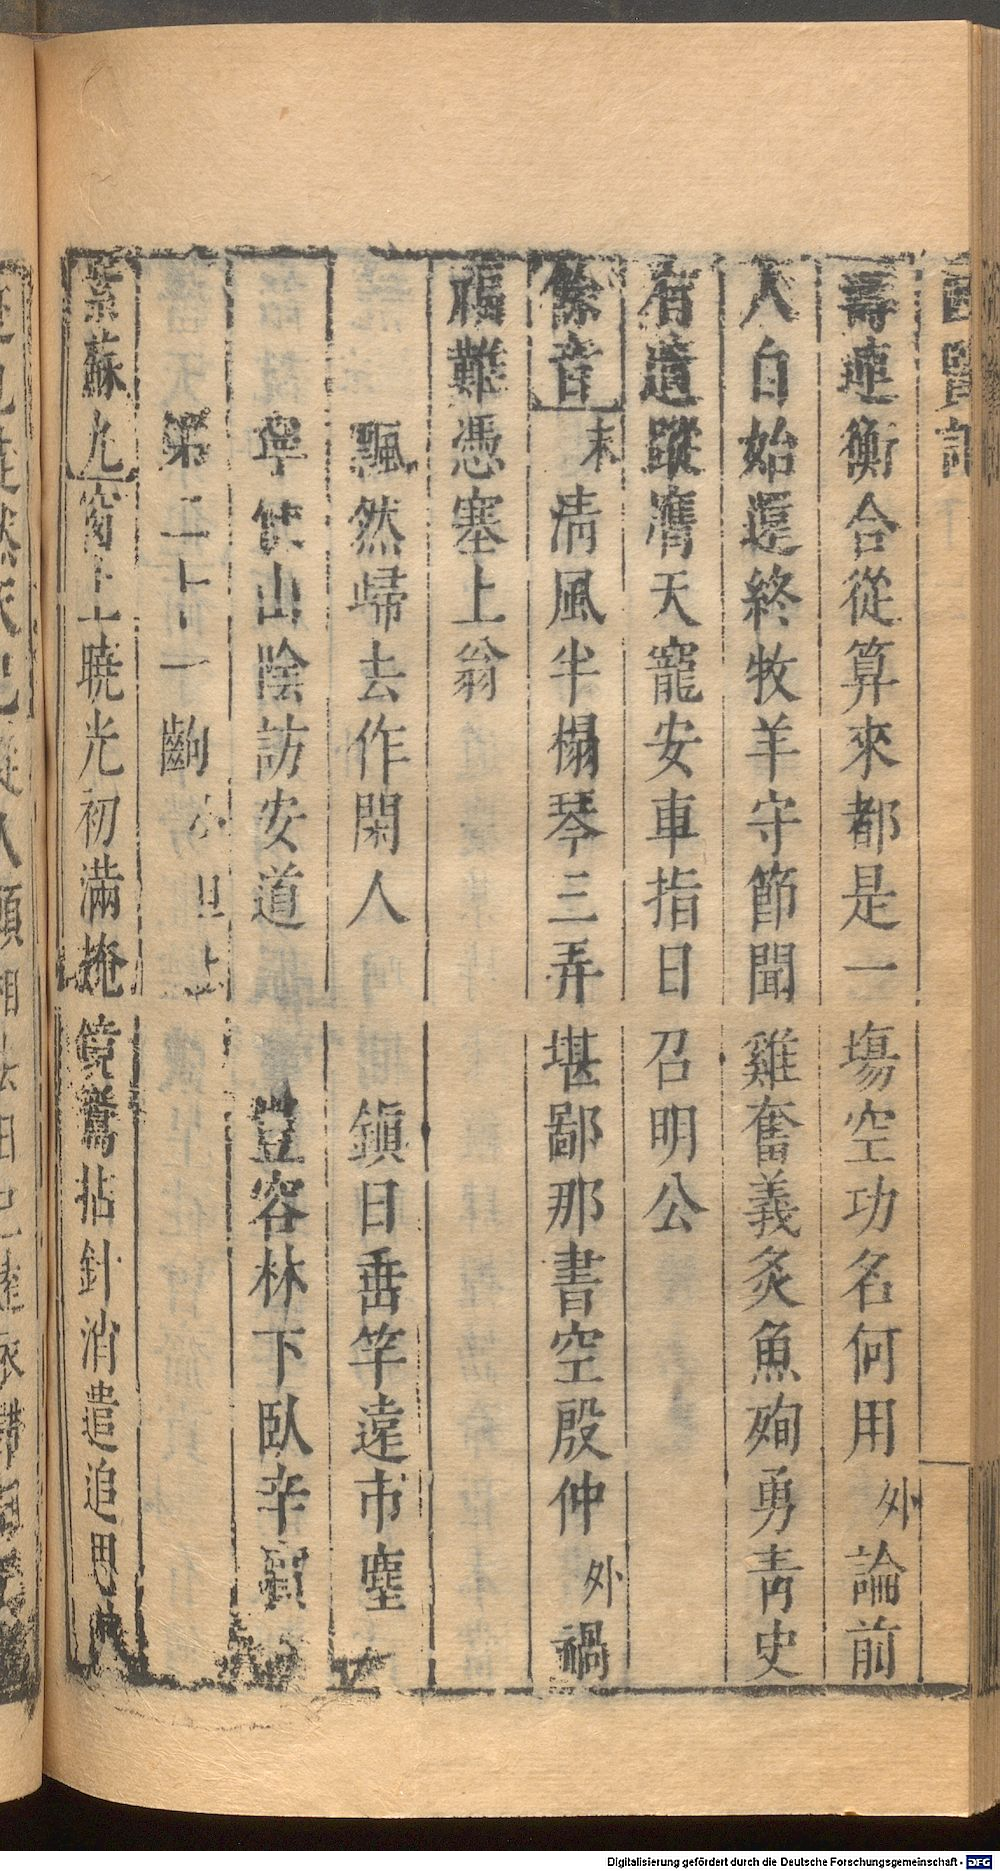 壽連衡合從算來都是一塲空功名何用外論前
人白始還終牧羊守節聞雞奮義炙魚殉勇青史
有遺蹤膺天寵安車指日召明公
餘音末淸風半榻琴三弄堪鄙那書空殷仲外禍
福難憑塞上翁
飄然歸去作閑人鎭日垂竿遠市塵
寧使山陰訪安道豈容林下臥辛賓
第二十一齣小旦上
紫蘇丸窗上曉光初滿掩鏡鸞拈針消遣追思
Digitalisierung gefördert durch die Deutsche Forschungsgemeinschaft - DFG